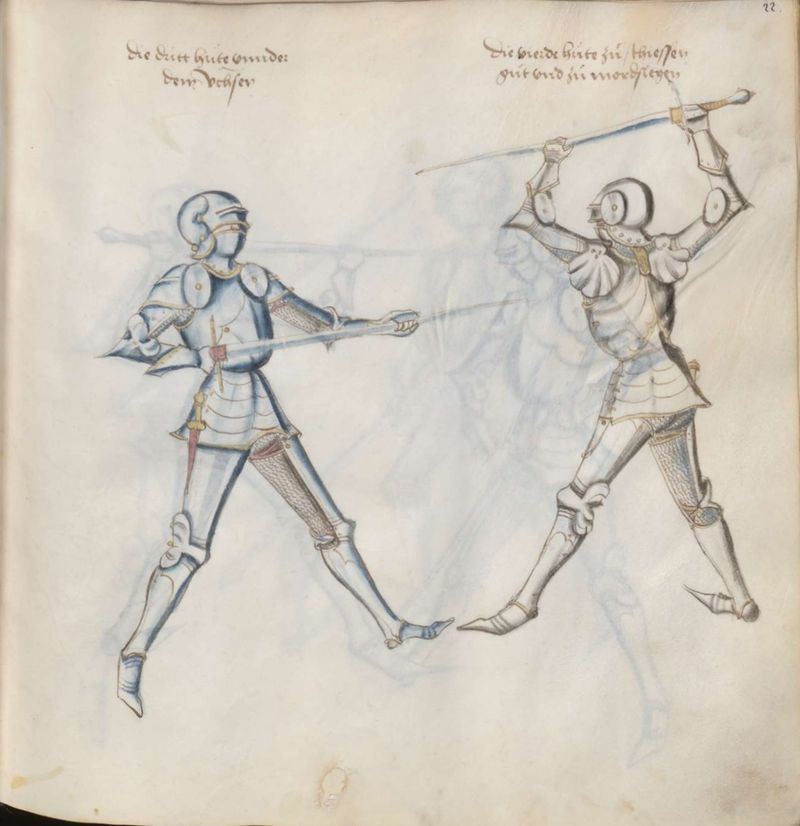 22.
die dritt hüte vnnder
dem Ochsen
Die vierde hüte zü schiessen
güt vnd zü mordslegen